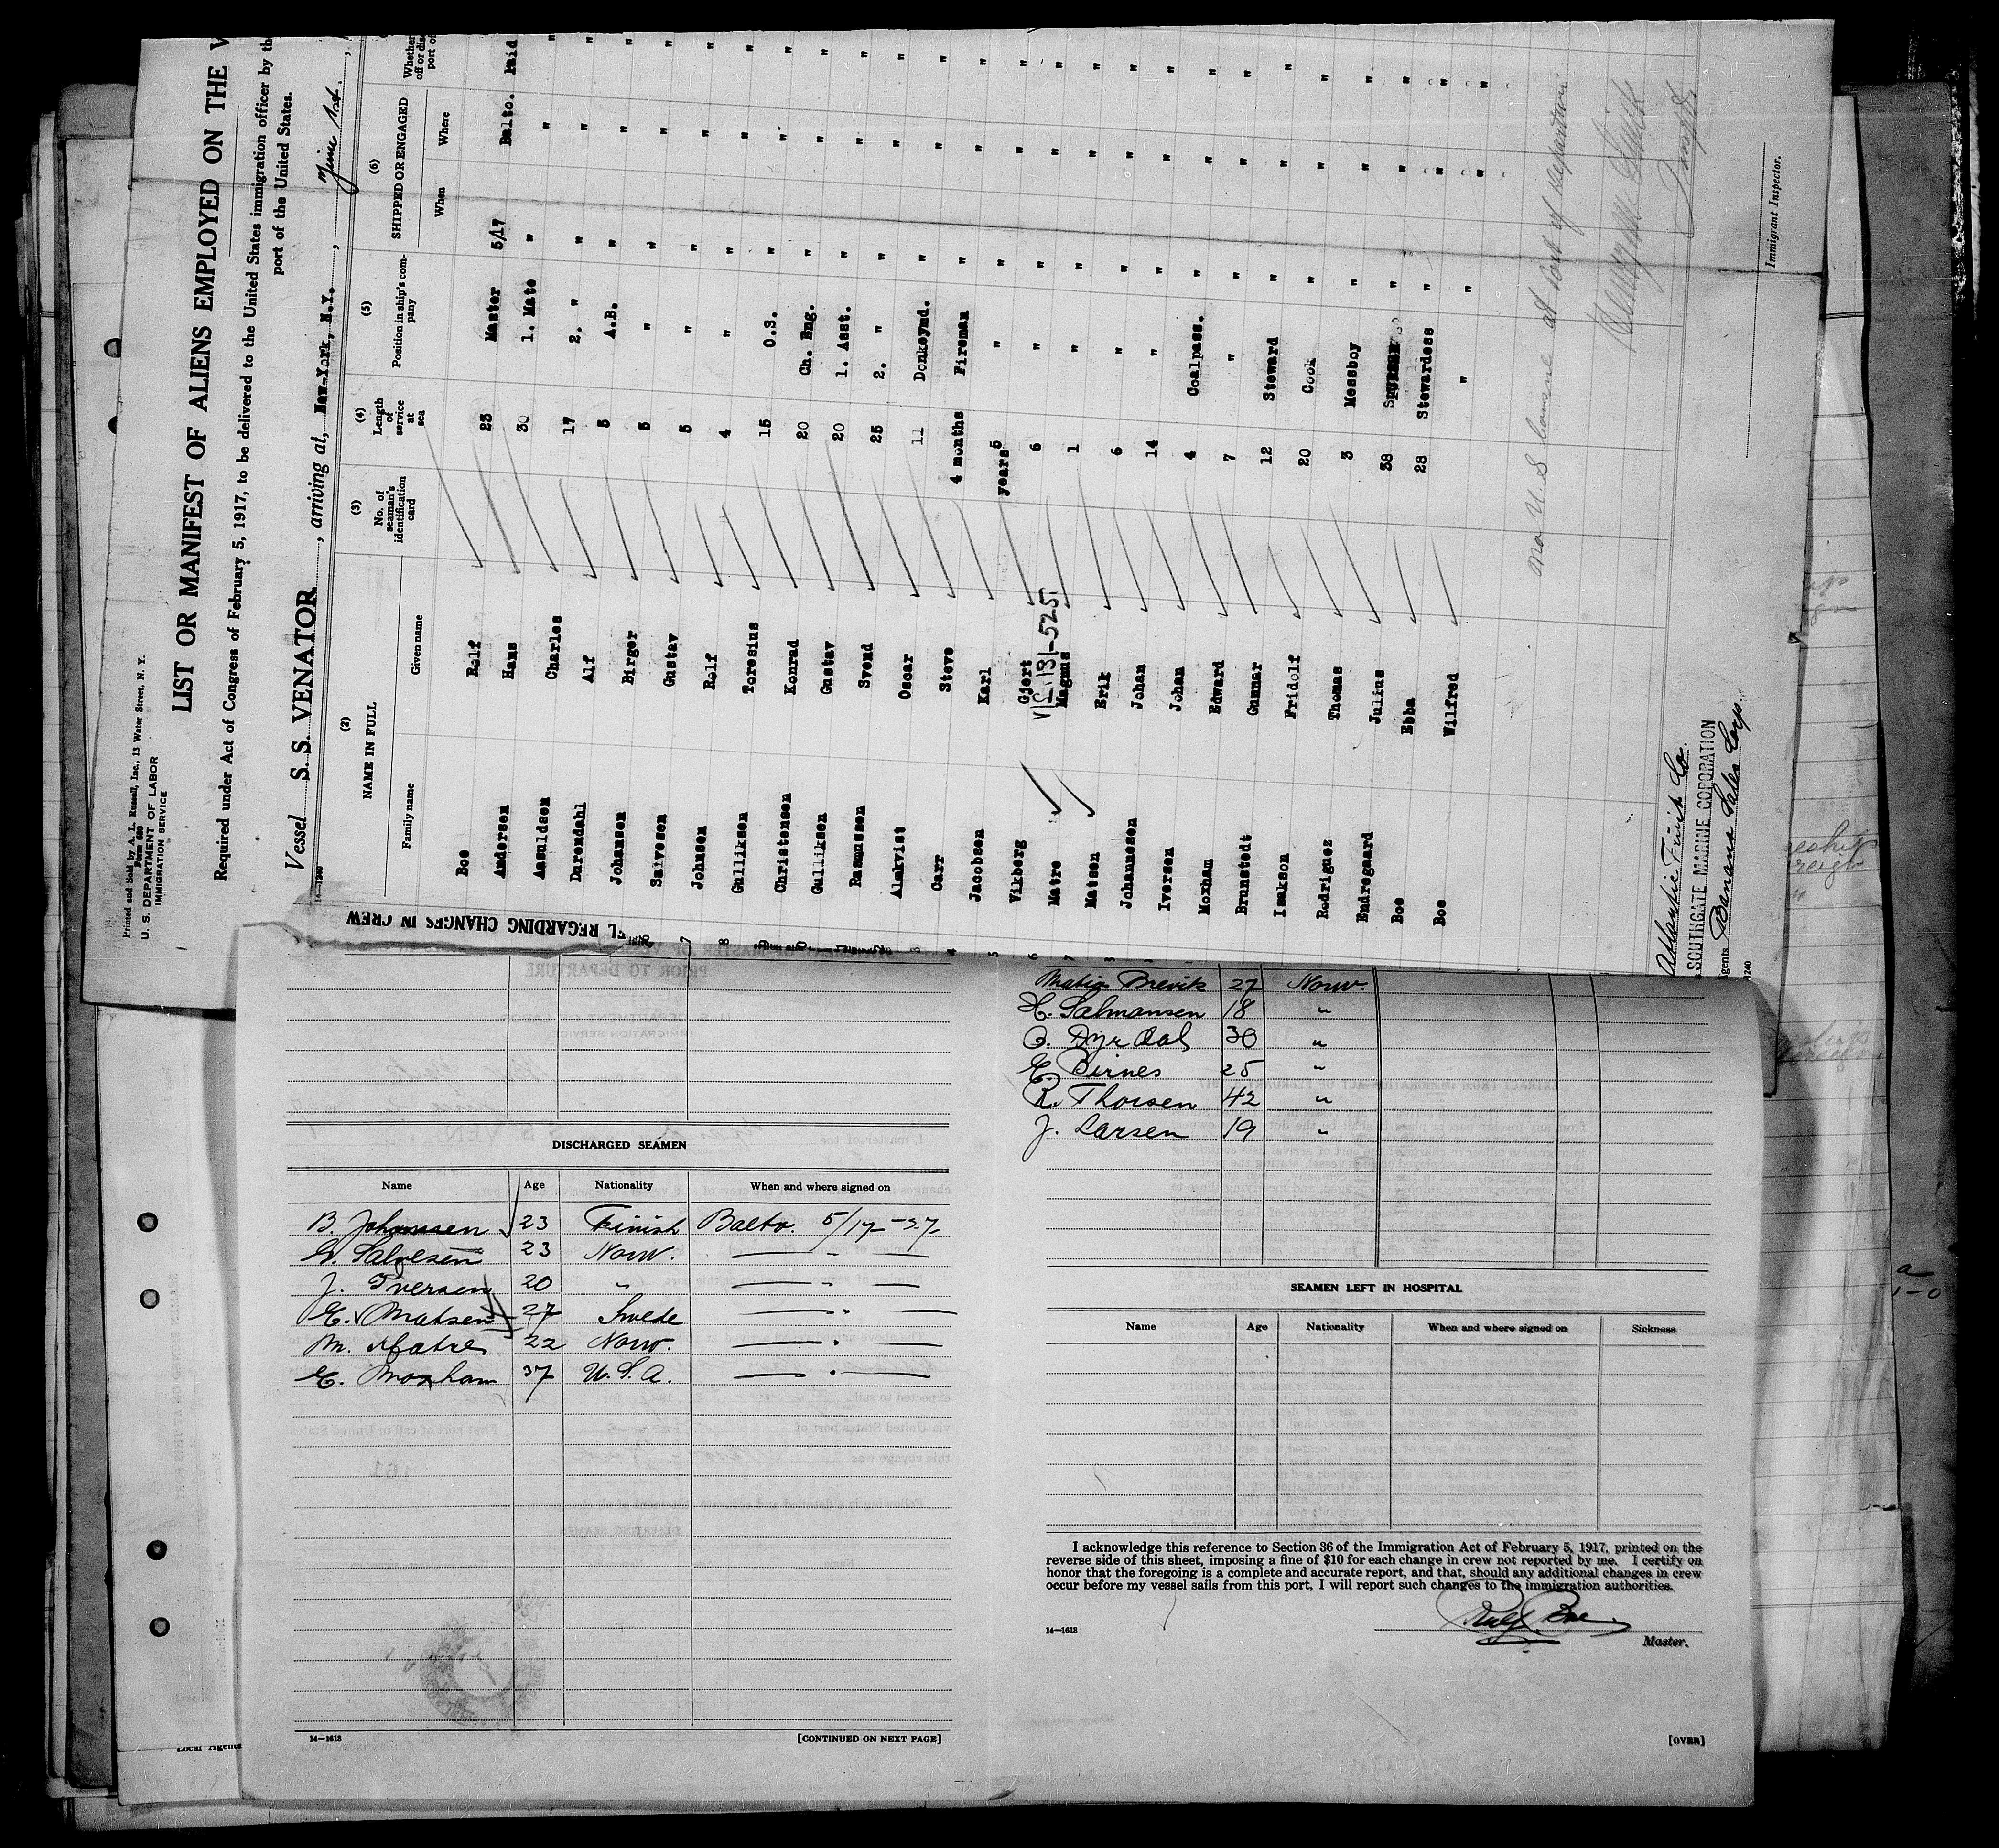 Printed and Sold by A. L. Russell, Inc., 13 Water Street, N. Y.
Form 680
U. S. DEPARTMENT OF LABOR
IMMIGRATION SERVICE
LIST OR MANIFEST OF ALIENS EMPLOYED ON THE V
Required under Act of Congress of February 5, 1917, to be delivered to the United States immigration officer by th
port of the United States.
Vessel S. S. VENATOR, arriving at, New-York, N.Y.,
14-1240
(2) (3) (4) (5) (6)
NAME IN FULL No. of seaman's identification card Length of service at sea Position in ship's company SHIPPED OR ENGAGED Whether
Family name Given name When Where
Boe Rolf 23 Master 5/17 Balto. Paid
Andersen Hans 30 1. Mate " " "
Aasuldsen Charles 17 2. " " " "
Durendahl Alf 5 A.B. " " "
Johansen Birger 5 " " " "
Salvesen Gustav 5 " " " "
Johnsen Rolf 4 " " " "
Gulliksen Toresius 15 O.S. " " "
Christensen Konrad 20 Ch. Eng. " " "
Gulliksen Gustav 20 1. Asst. " " "
Rasmussen Svend 25 2. " " " "
Alakvist Oscar 11 Donkeymd. " " "
Carr Steve 4 months Fireman " " "
Jacobsen Karl 5 years " " " "
Vikberg Gjert 6 " " " "
V/C-131-5251
Matre Magnus 1 " " " "
Matsen Erik 6 " " " "
Johannesen Johan 14 " " " "
Iversen Johan 4 Coalpass. " " "
Moxham Edward 7 " " " "
Brunstedt Gunnar 12 Steward " " "
Isakson Fridolf 20 Cook " " "
Rodriguez Thomas 3 Messboy " " "
Endregaard Julius 38 " " "
Boe Ebba 28 Stewardess " " "
Boe Wilfred " " " "
no U S Consul at port of departure
Immigrant Inspector.
Atlantic Fruit Co.
SOUTHGATE MARINE CORPORATION
Agents Banana Sales Corp.
1240
EL REGARDING CHANGES IN CREW
DISCHARGED SEAMEN
Name Age Nationality When and where signed on
B. Johansen 23 Finish Balto. 5/17-27
G. Salvesen 23 Norw. — " —
J. Iversen 20 " — " —
E. Matsen 27 Swede — " —
M. Matre 22 Norw. — " —
E. Moxham 37 U.S.A. — " —
14—1613
[CONTINUED ON NEXT PAGE]
Matis Brevik 27 Norw.
H. Salmansen 18 "
O. Dyrdal 30 "
E. Birnes 25 "
R. Thorsen 42 "
J. Larsen 19 "
SEAMEN LEFT IN HOSPITAL
Name Age Nationality When and where signed on Sickness
I acknowledge this reference to Section 36 of the Immigration Act of February 5, 1917, printed on the
reverse side of this sheet, imposing a fine of $10 for each change in crew not reported by me. I certify on
honor that the foregoing is a complete and accurate report, and that, should any additional changes in crew
occur before my vessel sails from this port, I will report such changes to the immigration authorities.
Rolf Boe
14—1613
Master.
[OVER]
Local Agents